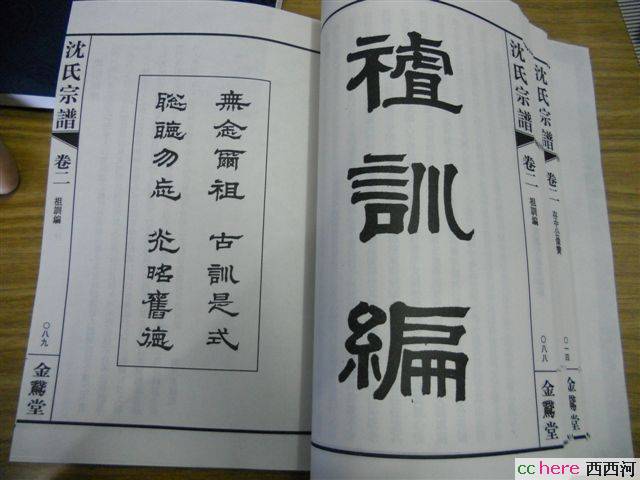 沈氏宗譜
卷二
金鵞堂
沈氏宗譜
卷二
祖訓編
〇八八
金鵞堂
祖訓編
無念爾祖 古訓是式
聡聽勿忘 光昭舊德
沈氏宗譜
卷二
祖訓編
〇八九
金鵞堂
cchere 西西河